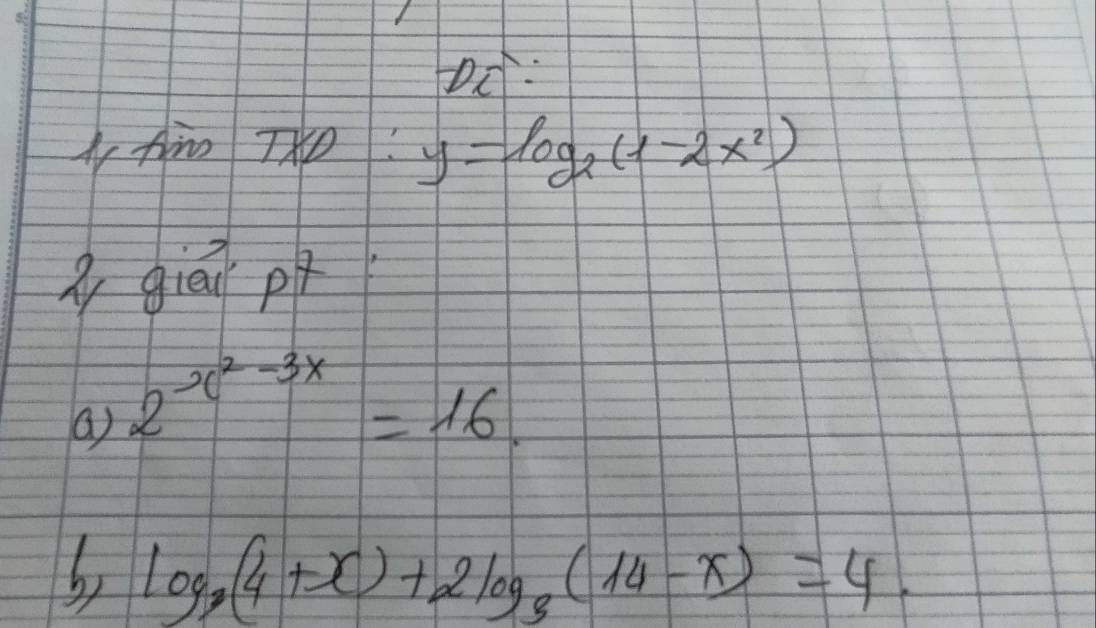 Đề :
1, tìm TXĐ : y = log₂(1-2x²)
2, giải pt :
a) 2^(x² -3x) = 16.
b, log₃(4+x) + 2log₃(14-x) = 4.